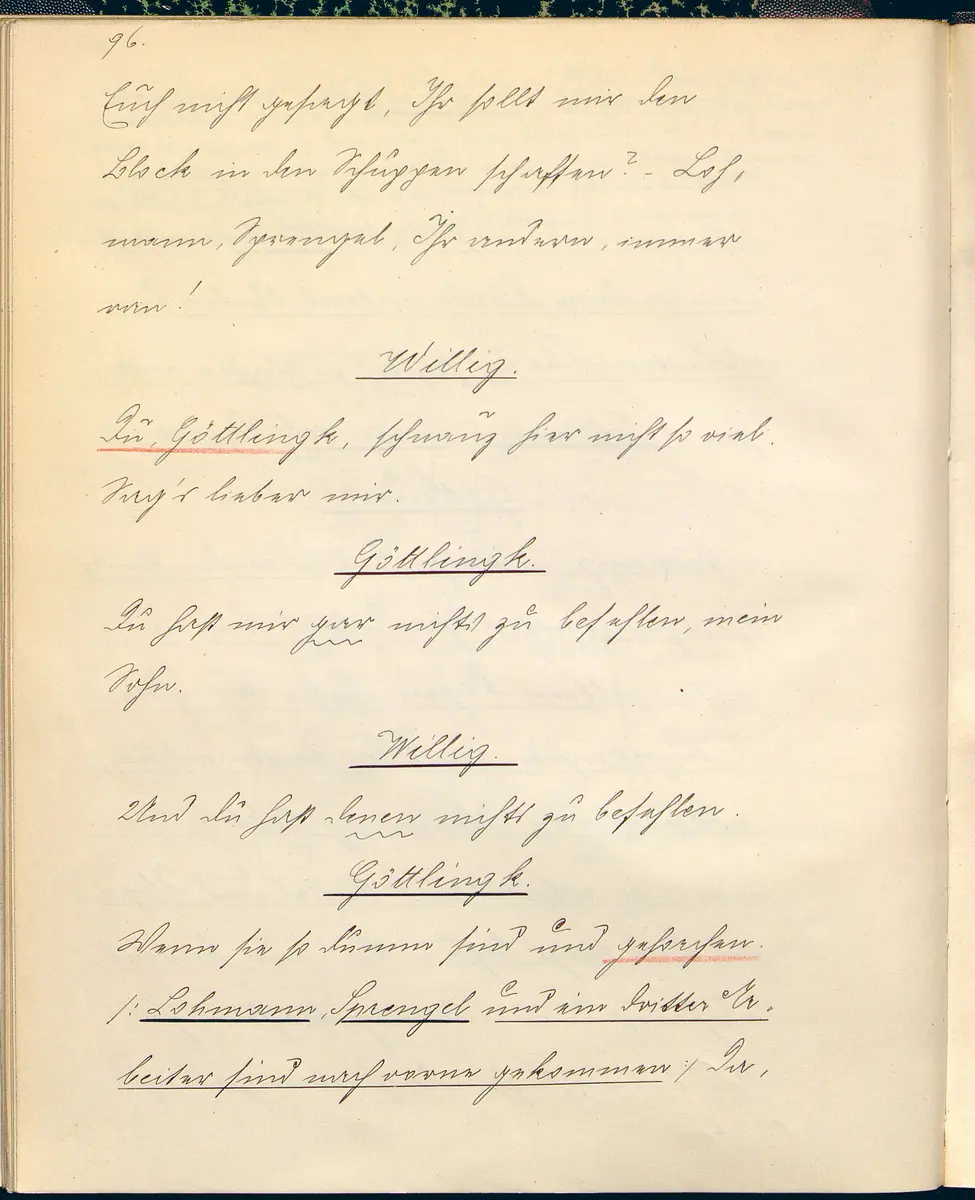 96.
Euch nicht gesagt, Ihr sollt mir den
Block in den Schuppen schaffen? - Loh,
mann, Sprengel, Ihr andern, immer
ran!
Willig.
Du, Göttlingk, schnauz hier nicht so viel.
Sag's lieber mir.
Göttlingk.
Du hast mir gar nichts zu befehlen, mein
Sohn.
Willig.
Und du hast denen nichts zu befehlen.
Göttlingk.
Wenn sie so dumm sind und gehorchen.
/: Lohmann, Sprengel und ein dritter Ar,
beiter sind nach vorne gekommen :/ Da,